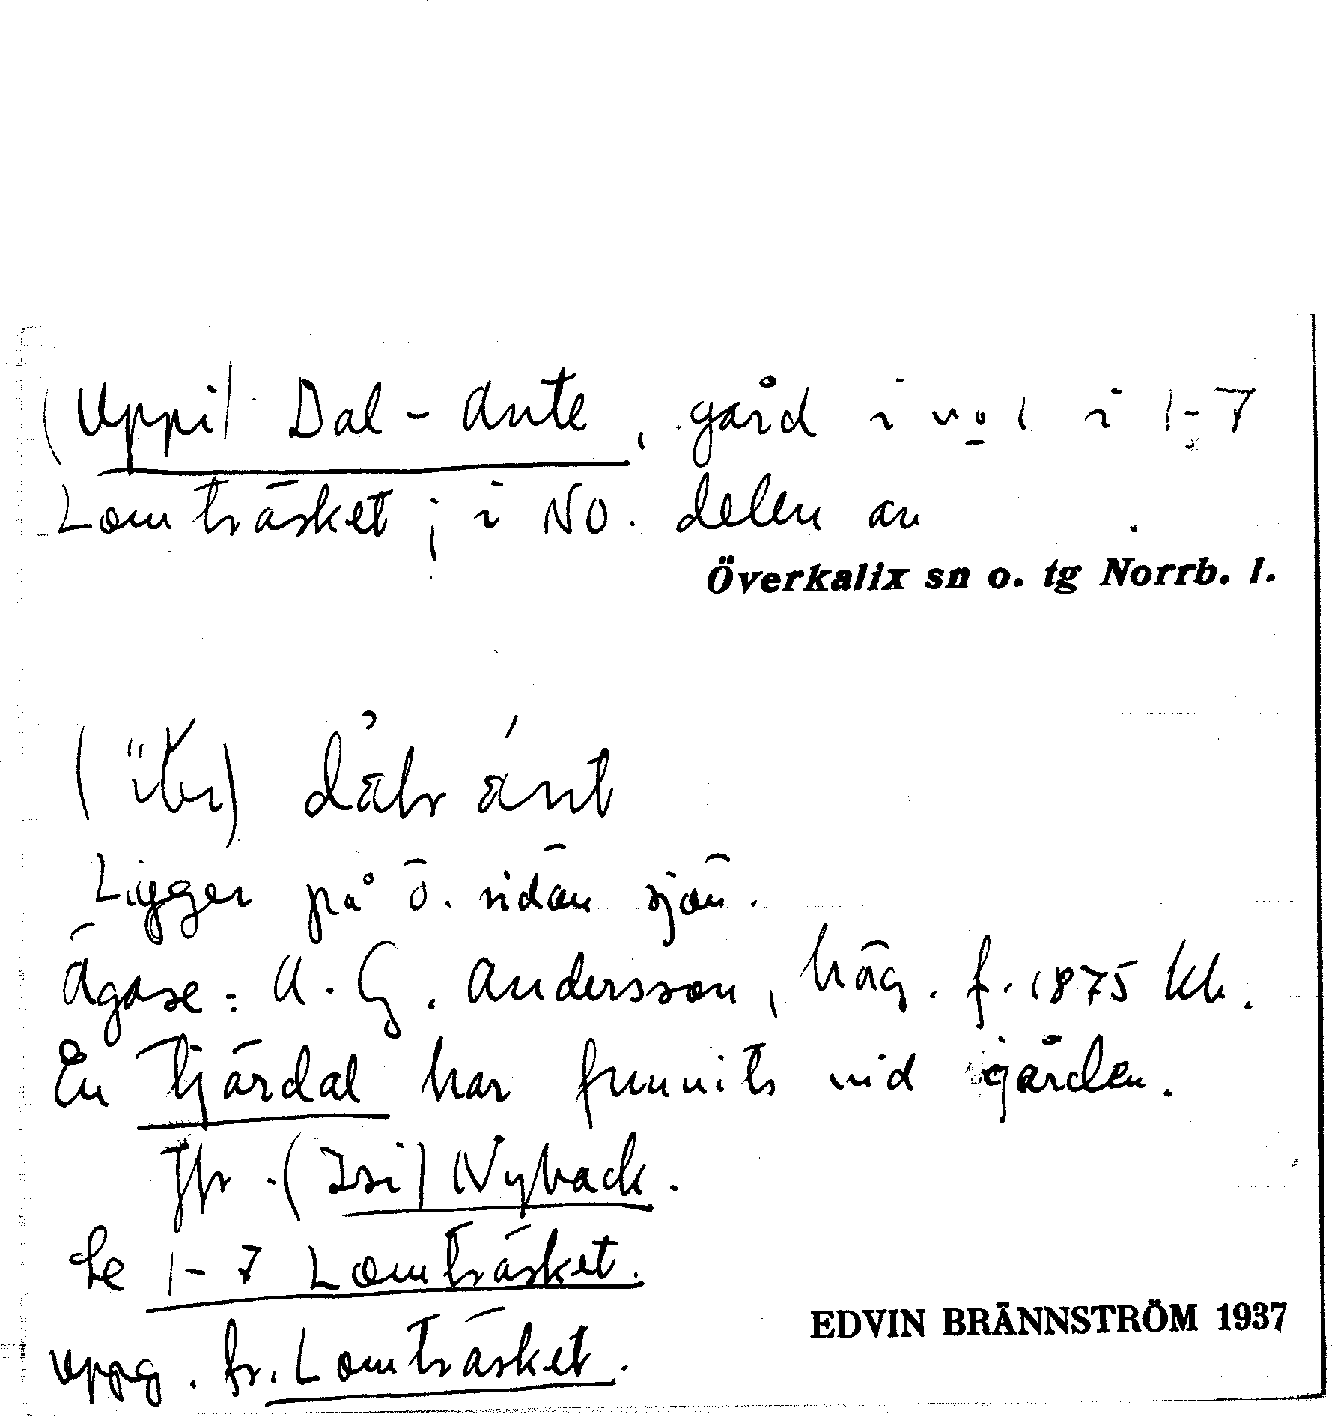 (Uppi) Dal-Ante, gård i no 1 i 1-7
Lomträsket; i NO. delen av
Överkalix sn o. tg Norrb. l.
dålr ánt
Ligger på ö. sidan sjön.
Ägare: A. G. Andersson, häg. f. 1875 kh.
En tjärdal har funnits vid gården.
Jfr. (Isi) Nyback.
Se 1-7 Lomträsket.
uppg. fr. Lomträsket.
EDVIN BRÄNNSTRÖM 1937